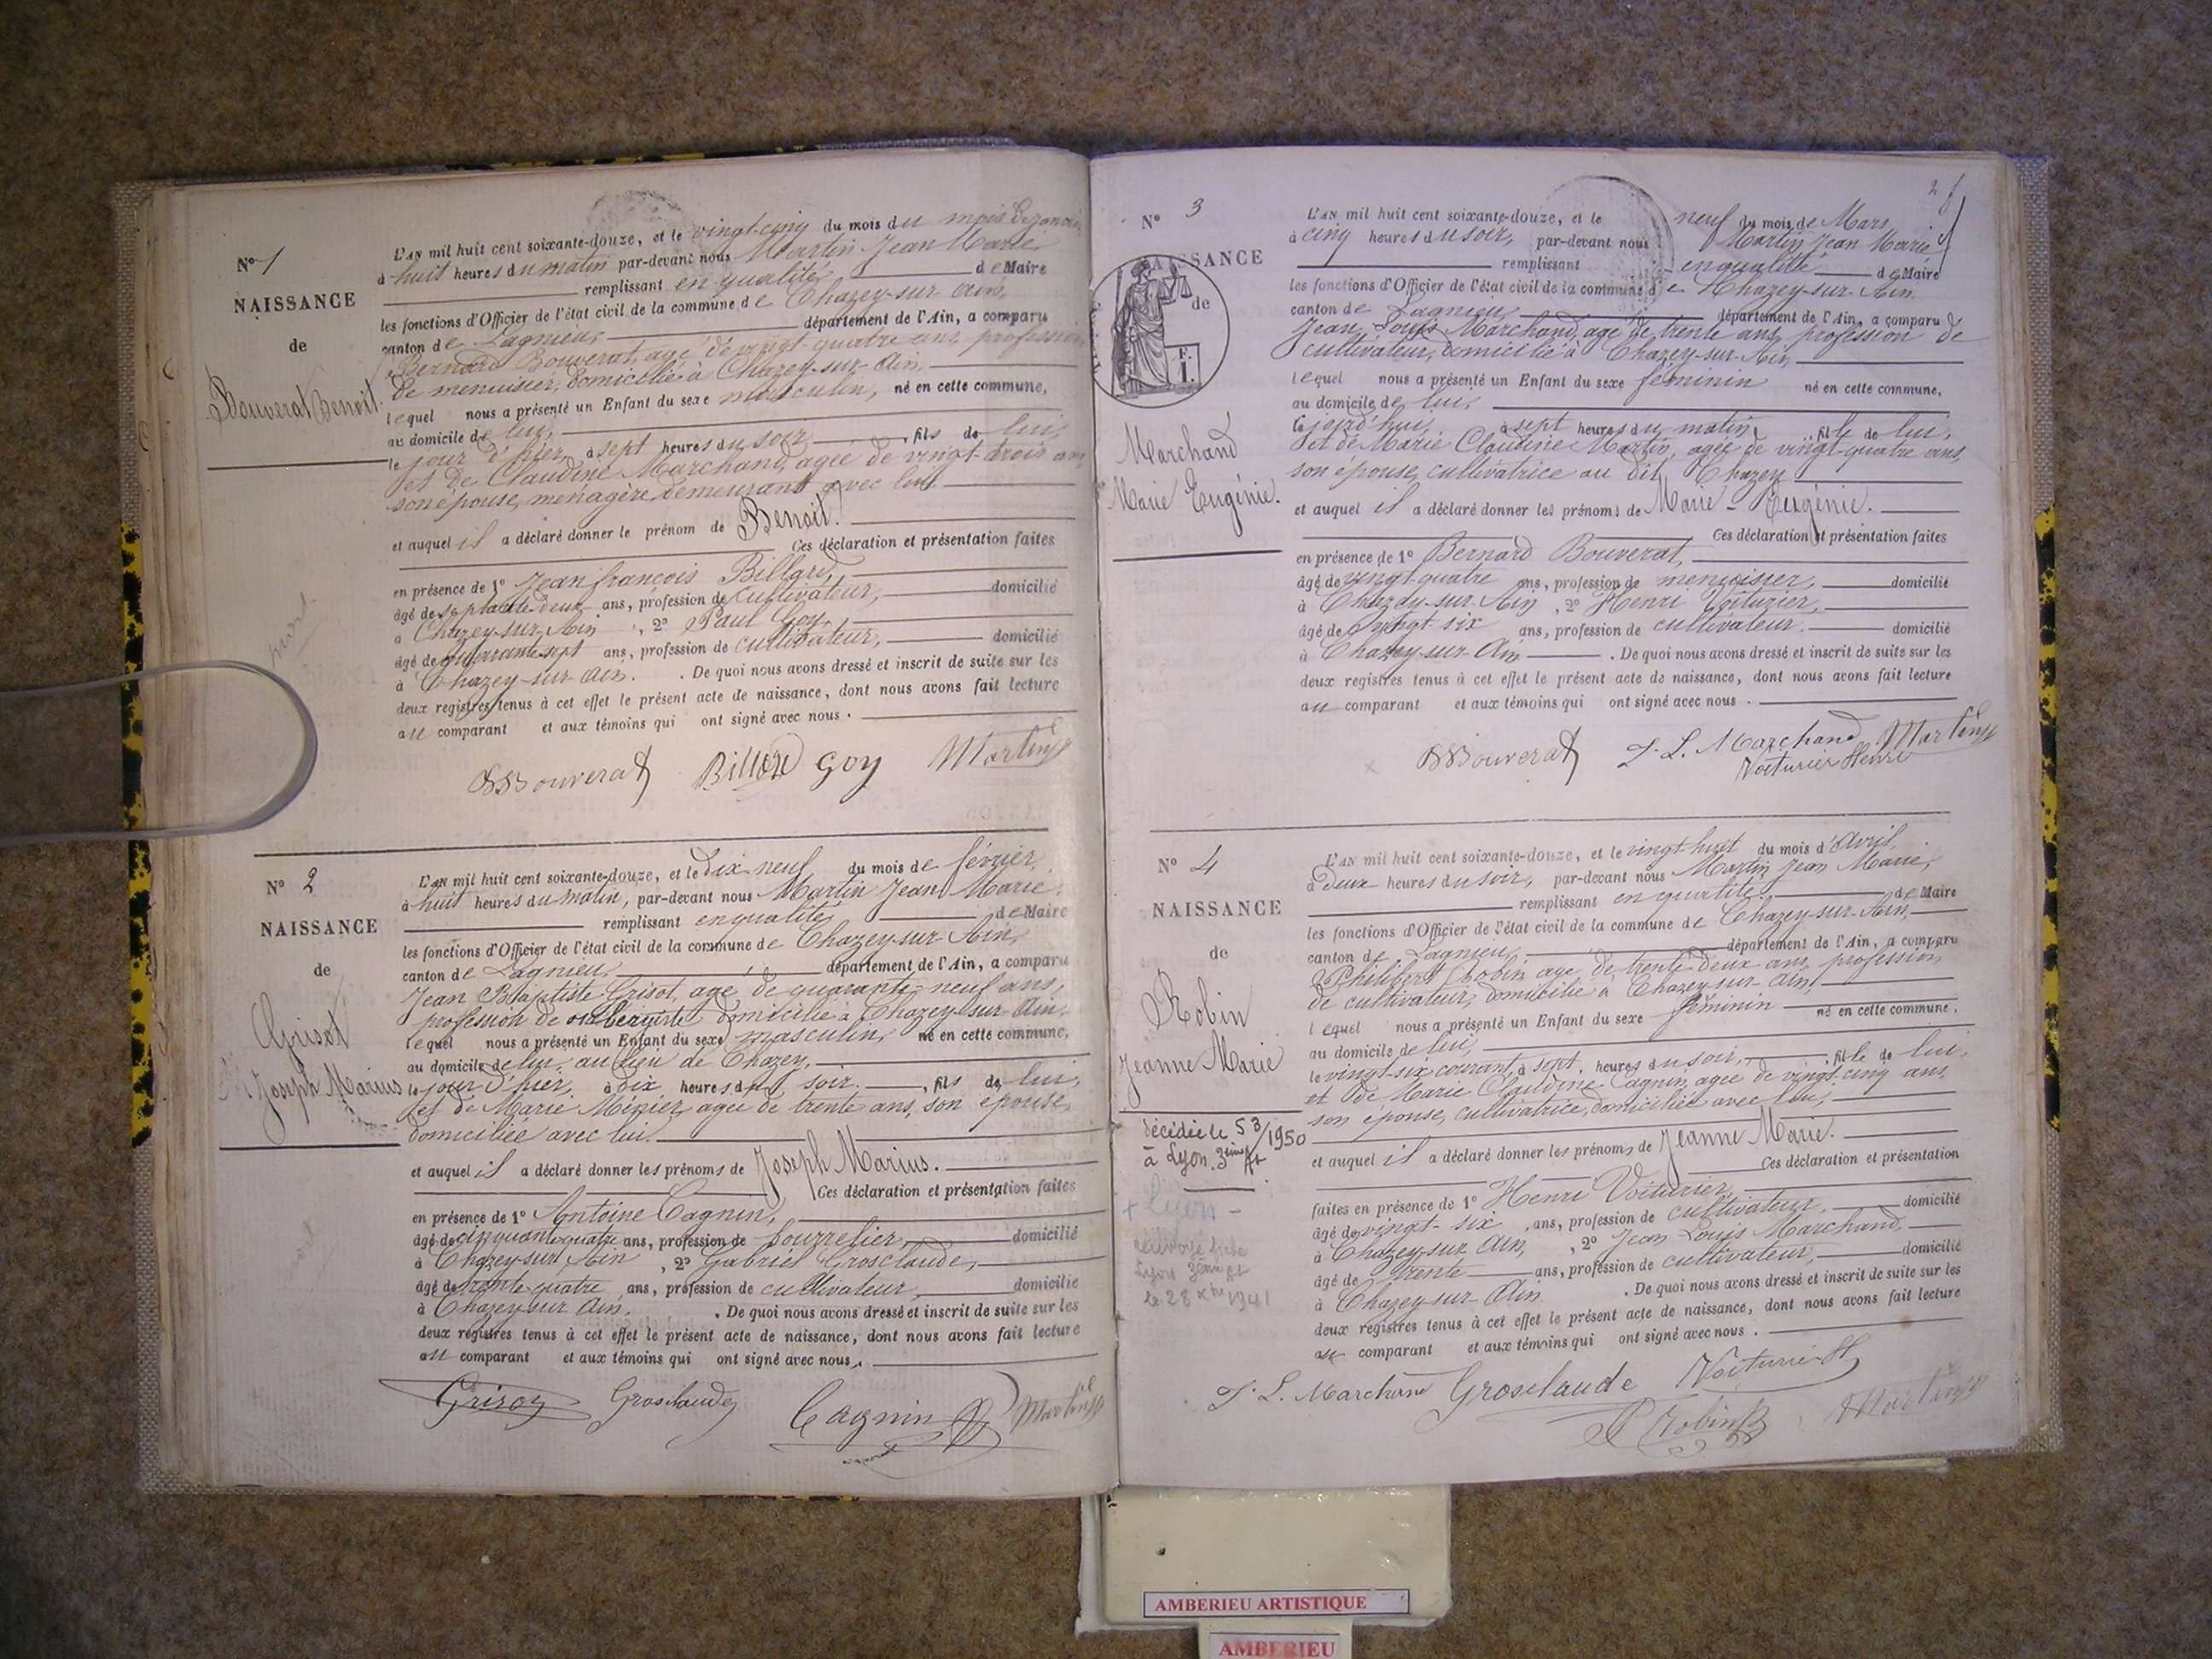 N° 1
NAISSANCE
de
Bouverat Benoit.
L'AN mil huit cent soixante-douze, et le vingt-cinq du mois du mois de janvier
à huit heures du matin par-devant nous Martin Jean Marie
remplissant en qualité de Maire
les fonctions d'Officier de l'état civil de la commune de Chazey-sur-Ain,
canton de Lagnieu, département de l'Ain, a comparu
Bernard Bouverat, agé de vingt quatre ans, profession
de menuisier, domicilié à Chazey-sur-Ain,
lequel nous a présenté un Enfant du sexe masculin, né en cette commune,
au domicile de lui,
le jour d'hier, à sept heures du soir, fils de lui,
et de Claudine Marchand, agée de vingt-trois ans
son épouse, ménagère, demeurant avec lui
et auquel il a déclaré donner le prénom de Benoit.
Ces déclaration et présentation faites
en présence de 1° Jean françois Billard,
âgé de septante-deux ans, profession de Cultivateur, domicilié
à Chazey-sur-Ain, 2° Paul Goy,
âgé de quarante-sept ans, profession de cultivateur, domicilié
à Chazey-sur-Ain. De quoi nous avons dressé et inscrit de suite sur les
deux registres tenus à cet effet le présent acte de naissance, dont nous avons fait lecture
au comparant et aux témoins qui ont signé avec nous.
Bouverat Billard Goy Martin
N° 2
NAISSANCE
de
Grisot
Joseph Marius
L'AN mil huit cent soixante-douze, et le dix neuf du mois de février,
à huit heures du matin, par-devant nous Martin Jean Marie,
remplissant en qualité de Maire
les fonctions d'Officier de l'état civil de la commune de Chazey-sur-Ain,
canton de Lagnieu, département de l'Ain, a comparu
Jean Baptiste Grisot, agé de quarante-neuf ans,
profession de aubergiste domicilié à Chazey-sur-Ain,
lequel nous a présenté un Enfant du sexe masculin, né en cette commune,
au domicile de lui, au lieu de Chazey,
le jour d'hier, à dix heures du soir, fils de lui,
et de Marie Ménier, agée de trente ans, son épouse,
domiciliée avec lui.
et auquel il a déclaré donner les prénoms de Joseph Marius.
Ces déclaration et présentation faites
en présence de 1° Antoine Cagnin,
âgé de cinquante quatre ans, profession de bourrelier, domicilié
à Chazey-sur Ain, 2° Gabriel Grosclaude,
âgé de trente-quatre ans, profession de cultivateur, domicilié
à Chazey-sur Ain. De quoi nous avons dressé et inscrit de suite sur les
deux registres tenus à cet effet le présent acte de naissance, dont nous avons fait lecture
au comparant et aux témoins qui ont signé avec nous.
Grosclaude Cagnin Martin
N° 3
NAISSANCE
de
F.
1.
Marchand
Marie Eugénie.
2
L'AN mil huit cent soixante-douze, et le neuf du mois de Mars
à cinq heures du soir, par-devant nous Martin Jean Marie
remplissant en qualité de Maire
les fonctions d'Officier de l'état civil de la commune de Chazey-sur-Ain
canton de Lagnieu, département de l'Ain, a comparu
Jean Louis Marchand, agé de trente ans, profession de
cultivateur, domicilié à Chazey-sur-Ain,
lequel nous a présenté un Enfant du sexe féminin né en cette commune,
au domicile de lui,
à sept heures du matin, fille de lui,
et de Marie Claudine Martin, agée de vingt-quatre ans,
son épouse, cultivatrice au dit Chazey
et auquel il a déclaré donner les prénoms de Marie-Eugénie.
Ces déclaration et présentation faites
en présence de 1° Bernard Bouverat,
âgé de vingt-quatre ans, profession de menuisier, domicilié
à Chazey-sur-Ain, 2° Henri Voiturier,
âgé de vingt six ans, profession de cultivateur, domicilié
à Chazey-sur-Ain. De quoi nous avons dressé et inscrit de suite sur les
deux registres tenus à cet effet le présent acte de naissance, dont nous avons fait lecture
au comparant et aux témoins qui ont signé avec nous.
Bouverat J. L. Marchand Martin
Voiturier Henri
N° 4
NAISSANCE
de
Robin
Jeanne Marie
décédée le 5 3/1950
à Lyon 3ème At
+ Lyon -
Lyon 3eme At
le 28 Xbre 1941
L'AN mil huit cent soixante-douze, et le vingt-huit du mois d'Avril,
à deux heures du soir, par-devant nous Martin Jean Marie,
remplissant en qualité de Maire
les fonctions d'Officier de l'état civil de la commune de Chazey-sur-Ain,
canton de Lagnieu, département de l'Ain, a comparu
Philibert Robin agé de trente-deux ans, profession
de cultivateur, domicilié à Chazey-sur-Ain,
lequel nous a présenté un Enfant du sexe féminin né en cette commune,
au domicile de lui,
le vingt-six courant, à sept heures du soir, fille de lui,
et de Marie Claudine Cagnin, agée de vingt-cinq ans,
son épouse, cultivatrice, domiciliée avec lui,
et auquel il a déclaré donner les prénoms de Jeanne Marie.
Ces déclaration et présentation
faites en présence de 1° Henri Voiturier,
âgé de vingt-six ans, profession de cultivateur, domicilié
à Chazey-sur Ain, 2° Jean Louis Marchand,
âgé de trente ans, profession de cultivateur, domicilié
à Chazey-sur-Ain. De quoi nous avons dressé et inscrit de suite sur les
deux registres tenus à cet effet le présent acte de naissance, dont nous avons fait lecture
au comparant et aux témoins qui ont signé avec nous.
J. L. Marchand Groselaude Voiturier H
P Robin Martin
AMBERIEU ARTISTIQUE
AMBERIEU